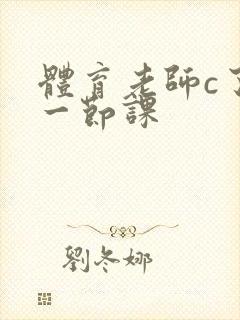 體育老師c了
一節課
劉冬娜